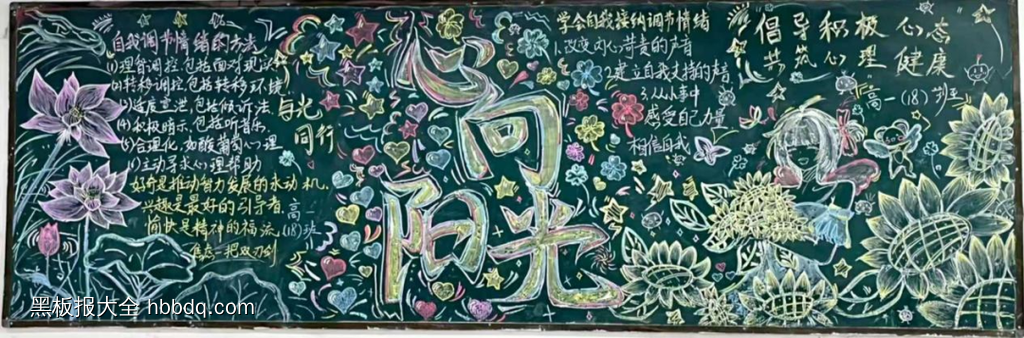 自我调节情绪的方法
(1)理智调控,包括面对现实
(2)转移调控,包括转移环境
(3)适度宣泄,包括倾诉法
(4)积极暗示,包括听音乐
(5)合理化,如酸葡萄心理
(6)主动寻求心理帮助
好奇是推动智力发展的永动机,
兴趣是最好的引导者,
愉快是精神的福流,
焦虑一把双刃剑
高一
(18)班
与光
同行
心向
阳光
学会自我接纳调节情绪
1.改变内心苛责的声音
2.建立自我支持的声音
3.从从事中
感受自己力量
相信自我
倡导积极 心态
共筑心理 健康
高一(18)班
黑板报大全 hbbdq.com